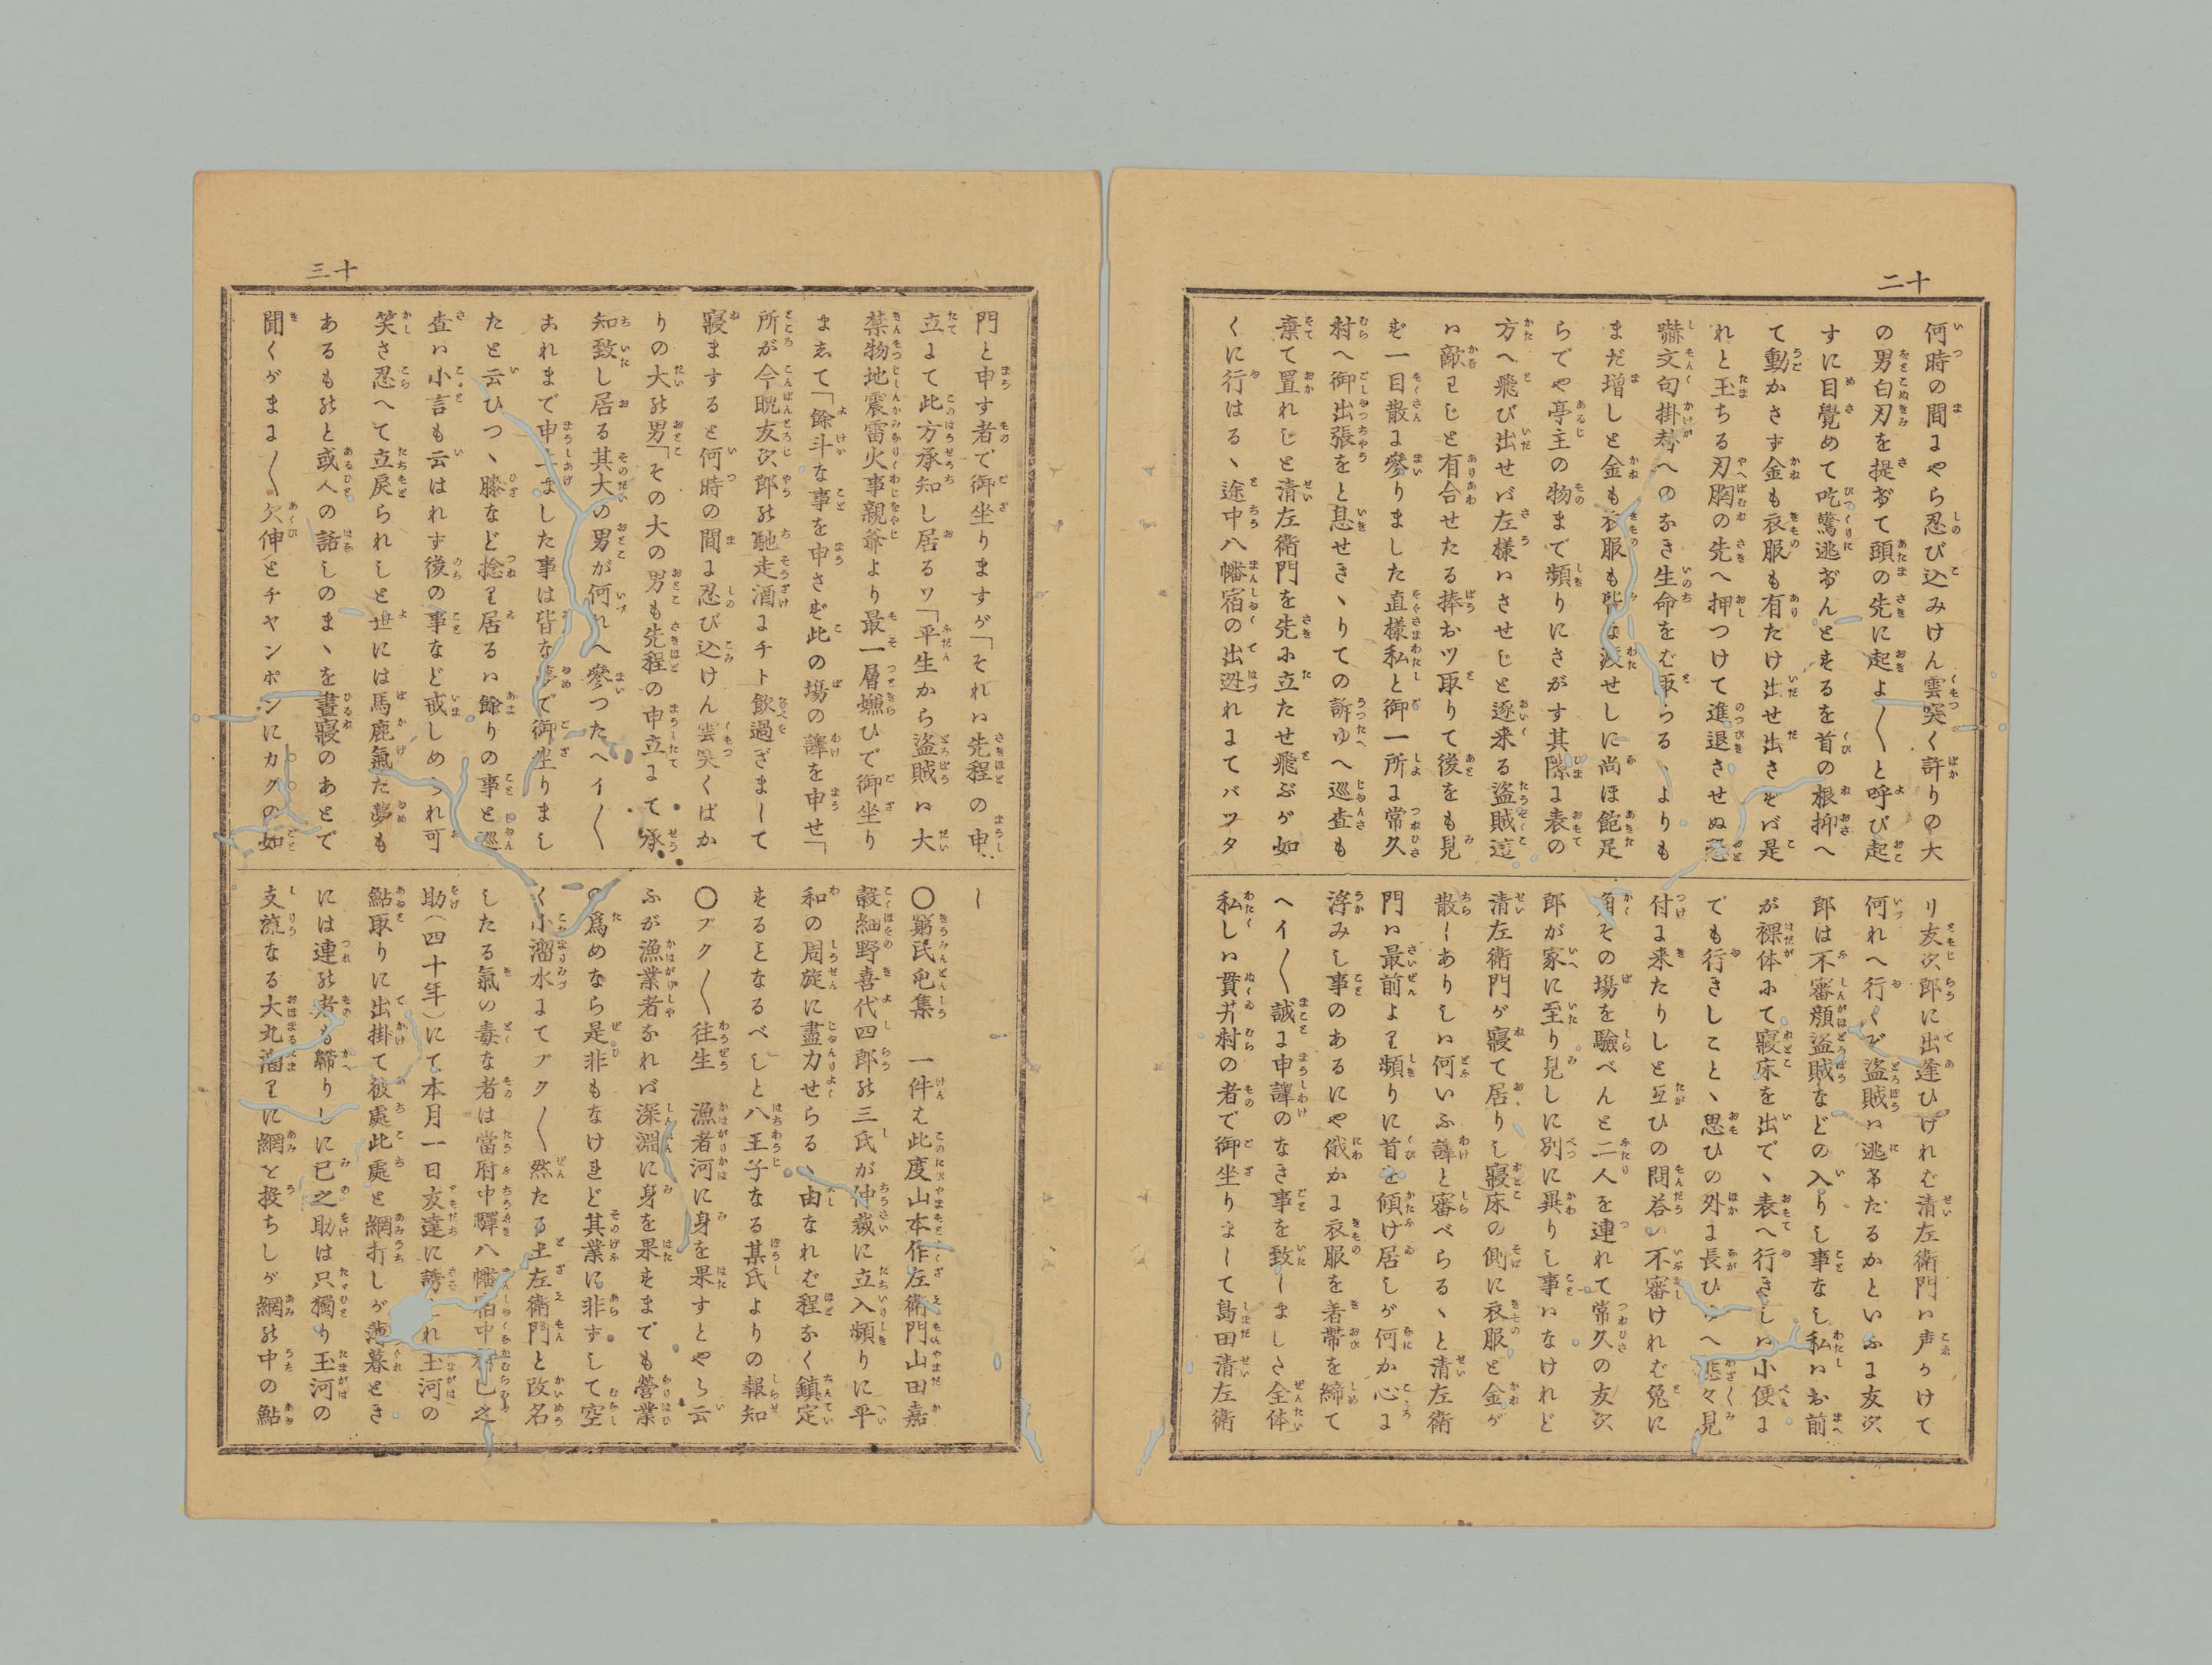 十二
何時の間にやら忍び込みけん雲突く許りの大
の男白刃を提げて頭の先に起よ〱と呼び起
すに目覺めて吃驚逃げんとするを首の根抑へ
て動かさず金も衣服も有たけ出せ出さずバ是
れと玉ちる刃胸の先へ押つけて進退させぬ恐
嚇文句掛替へのなき生命をむ取らるゝよりも
まだ増しと金も衣服も皆な渡せしに尚ほ飽足
らでや亭主の物まで頻りにさがす其隙に表の
方へ飛び出せバ左様ハさせじと逐来る盗賊這
ハ敵ハじと有合せたる捧おツ取りて後をも見
ず一目散に參りました直様私と御一所に常久
村へ御出張をと息せきゝりての訴ゆへ巡査も
棄て置れじと清左衛門を先に立たせ飛ぶが如
くに行はるゝ途中八幡宿の出逊れにてバツタ
リ友次郎に出逢ひけれむ清左衛門ハ声かけて
何れへ行くぞ盗賊ハ逃げたるかといふに友次
郎は不審顔盗賊などの入りし事なし私ハお前
が裸体にて寢床を出でゝ表へ行きしハ小便に
でも行きしことゝ思ひの外に長ひゆへ態々見
付に来たりしと互ひの問答ハ不審けれむ兔に
角その場を驗べんと二人を連れて常久の友次
郎が家に至り見しに別に異りし事ハなけれど
清左衛門が寢て居りし寢床の側に衣服と金が
散しありしハ何いふ譯と審べらるゝと清左衛
門ハ最前より頻りに首を傾け居しが何か心に
浮みし事のあるにや俄かに衣服を着帯を締て
ヘイ〱誠に申譯のなき事を致しました全体
私しハ貫井村の者で御坐りまして島田清左衛
十三
門と申す者で御坐りますが「それハ先程の申
立にて此方承知し居るツ「平生から盗賊ハ大
禁物地震雷火事親爺より最一層嫌ひで御坐り
まして「餘斗な事を申さず此の塲の譯を申せ「
所が今晩友次郎の馳走酒にチト飲過ぎまして
寢ますると何時の間に忍び込けん雲突くばか
りの大の男「その大の男も先程の申立にて承
知致し居る其大の男が何れへ參つたヘイ〱
おれまで申上ました事は皆な夢で御坐りまし
たと云ひつゝ膝など捻り居るハ餘りの事と巡
査ハ小言も云はれず後の事など戒しめられ可
笑さ忍へて立戻られしと世には馬鹿氣た夢も
あるものと或人の話しのまゝを晝寢のあとで
聞くがまに〱欠伸とチヤンポンにカクの如
し
〇窮民屯集　一件は此度山本作左衛門山田嘉
穀細野喜代四郎の三氏が仲裁に立入頻りに平
和の周旋に盡力せらるゝ由なれむ程なく鎮定
するとなるべしと八王子なる某氏よりの報知
〇ブク〱往生　漁者河に身を果すとやら云
ふが漁業者なれバ深淵に身を果すまでも營業
の爲めなら是非もなけれど其業に非ずして空
く小溜水にてブク〱然たる土左衛門と改名
したる氣の毒な者は當府中驛八幡宿中村巳之
助（四十年）にて本月一日友達に誘はれ玉河の
鮎取りに出掛て彼處此處と網打しが薄暮とき
には連の者も歸りしに巳之助は只獨り玉河の
支流なる大丸溜りに網を投ちしが網の中の鮎